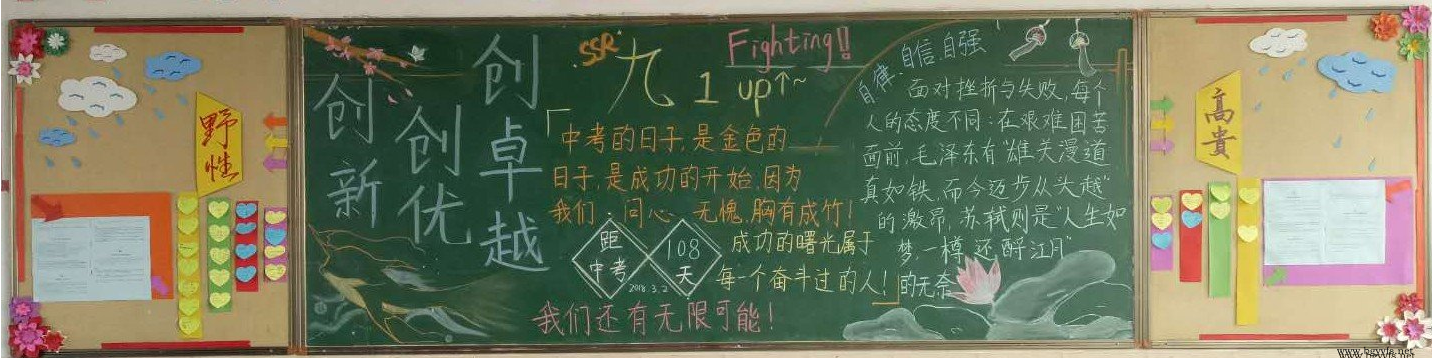 野性
创新
创优
创卓越
SSR
九
1 up↑~
Fighting!!
「中考的日子,是金色的
日子,是成功的开始,因为
我们:问心无愧,胸有成竹!
距中考
108天
2018.3.2
成功的曙光属于
每一个奋斗过的人!」
我们还有无限可能!
自律、自信、自强
面对挫折与失败,每个
人的态度不同:在艰难困苦
面前,毛泽东有"雄关漫道
真如铁,而今迈步从头越"
的激昂,苏轼则是"人生如
梦,一樽还酹江月"
的无奈
高贵
www.bgyyfs.net